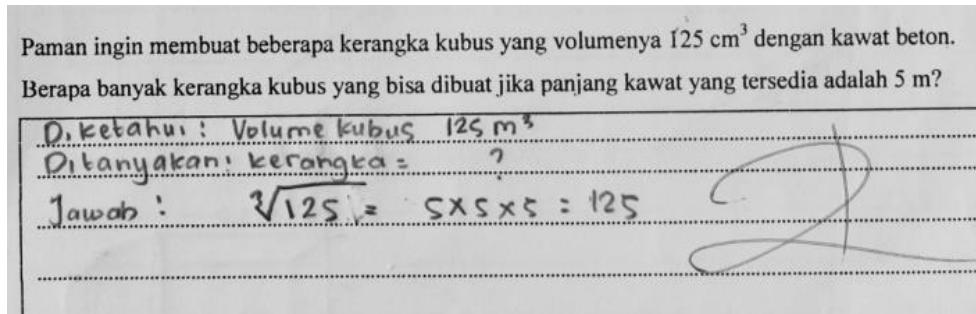 Paman ingin membuat beberapa kerangka kubus yang volumenya 125 cm³ dengan kawat beton.
Berapa banyak kerangka kubus yang bisa dibuat jika panjang kawat yang tersedia adalah 5 m?
Diketahui : Volume kubus 125 m³
Ditanyakan : kerangka = ?
Jawab : ∛125 = 5×5×5 = 125